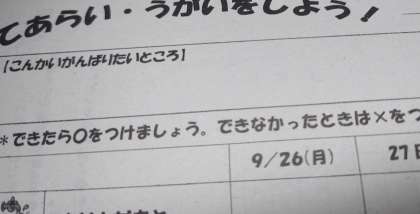 てあらい・うがいをしよう！
【こんかいがんばりたいところ】
*できたら○をつけましょう。できなかったときは×をつ
9/26(月) 27日